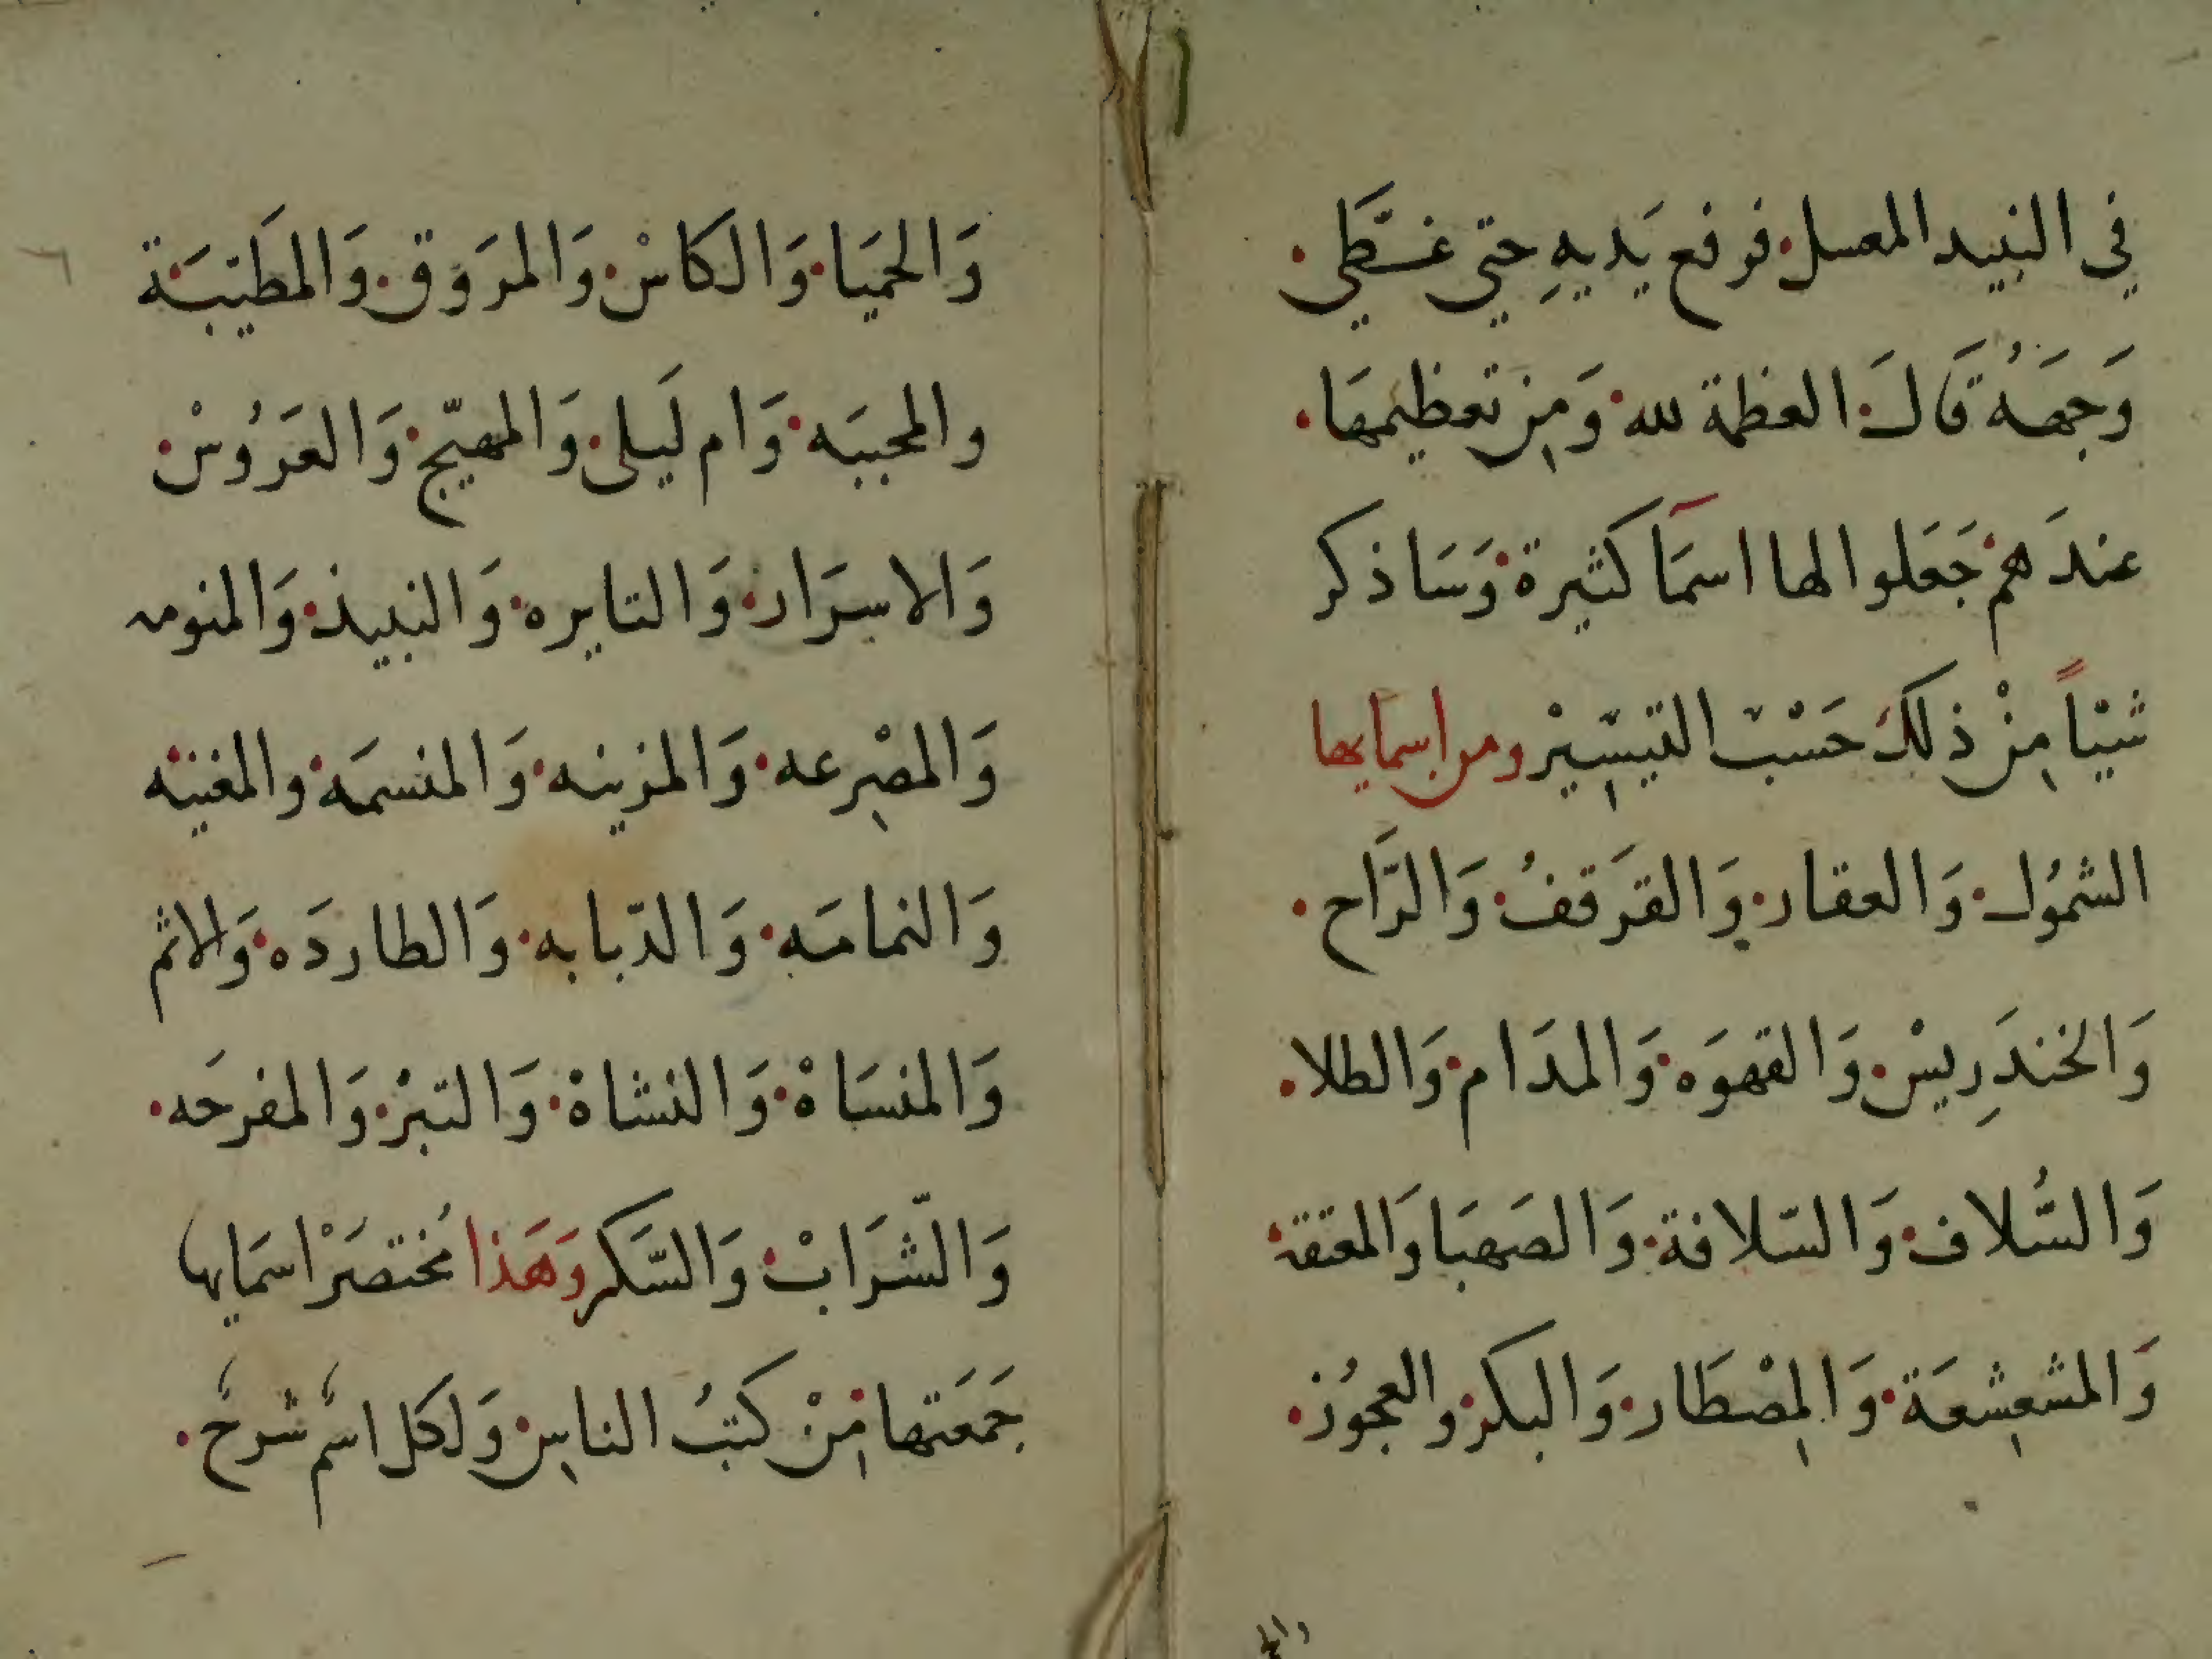 في النبيد المعسل فرفع يَديهِ حتي غطَّي
وَجهَهُ قَالَ العظمة لله وَمِن تعظيمهَا
عندَهم جَعَلوا لها اسمَآ كثيرة وَسَاذكر
شيًا مِنْ ذلك حَسْب التيسِّيْر ومن اسمَايها
الشموُل وَالعقار وَالقرَقفُ وَالرَّاح
وَالخندَرِيسْ وَالقهوَه وَالمدَام وَالطلا
وَالسُّلاف وَالسّلافة وَالصَهبَا وَالمعتقة
وَالمشعشِعَة وَالمِصْطَار وَالبكر والعجوُز
والح
وَالحميَا وَالكاسْ وَالمرَوق وَالمطَيّبَة
والمحببَه وَام لَيلى وَالمهيّج وَالعَرُوسْ
وَالاسرَار وَالتايره وَالنبيذ وَالمنومه
وَالمصْرِعه وَالمزينه وَالمنسمَة والمغنيه
وَالنمامَه وَالدّبابه وَالطاردَه وَالاثم
وَالمنسَاةْ وَالنشاةْ وَالتبرْ وَالمفرحَه
وَالشّرَابْ وَالسَّكر وَهَذا مُختصَرْ اسمَايها
جَمَعَتها مِنْ كتبُ الناسِ وَلكل اسمٌ شرحٌ